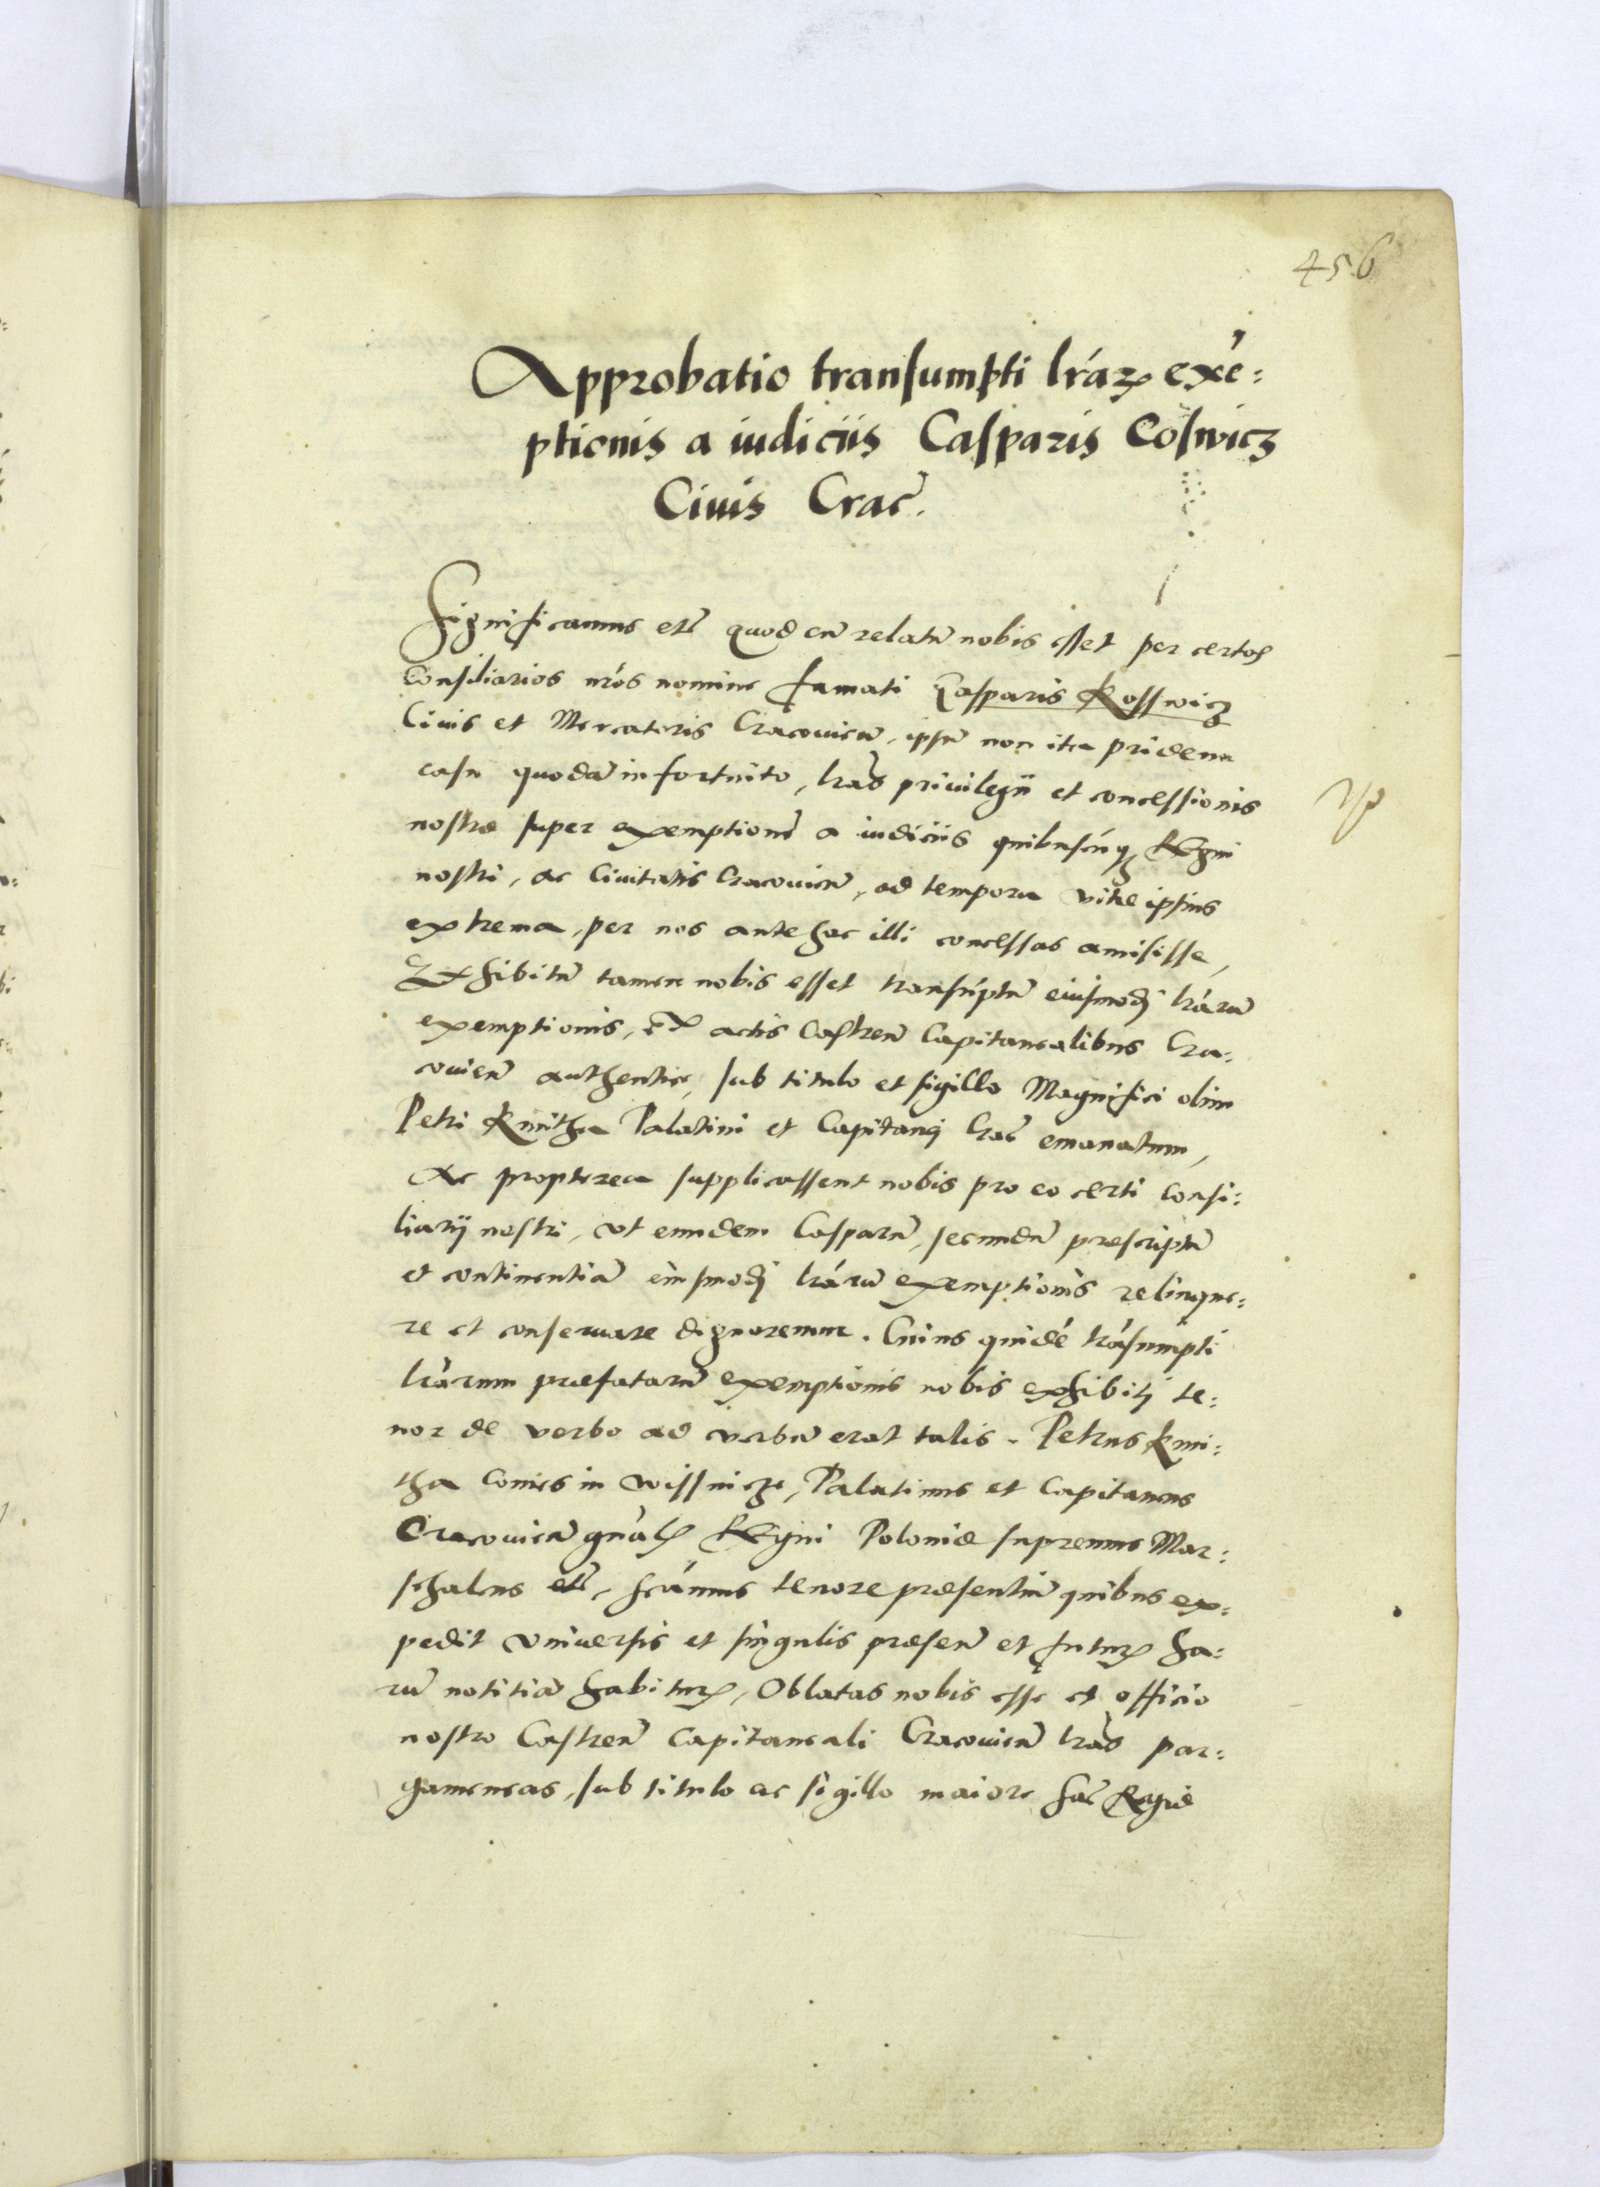 456
Approbatio transumpti lrar exe:
ptionis a iudiciis Casparis Coswicz
Ciuis Crac.
Significamus etc quod cu relatu nobis esset per certos
Consiliarios nros nomine famati Casparis Kosswicz
Ciuis et Mercatoris Cracovien, ipsu non ita pridem
casu quoda infortuito, lras priuilegii et concessionis
nostrae super exemptione a iudiciis quibuscuq Regni
nostri, ac Ciuitatis Cracovien, ad tempora vitae ipsius
extrema, per nos antehac illi concessas amisisse,
Exhibitu tamen nobis esset transuptu eiusmodi lraru
exemptionis, ex actis Castren Capitanealibus Cra:
covien authentice, sub titulo et sigillo Magnifici olim
Petri Kmitha Palatini et Capitanei Crac emanatum,
Ac propterea supplicassent nobis pro eo certi Consi:
liarij nostri, vt eundem Casparu, secundu praescriptu
et continentia eiusmodi lraru exemptionis relinque:
re et conseruare dignoremur. Cuius quide trasumpti
lrarum praefataru exemptionis nobis exhibiti te:
nor de verbo ad verbu erat talis. Petrus Kmi:
tha Comes in Wissnicze, Palatinus et Capitaneus
Cracovien gnalis Regni Poloniae supremus Mar:
schalcus etc, scimus tenore praesentiu quibus ex:
pedit vniuersis et singulis praesen et futur ha:
ru notitia habitur, Oblatas nobis esse et officio
nostro Castren Capitaneali Cracovien lras par:
gameneas, sub titulo ac sigillo maiore Sac Regiae